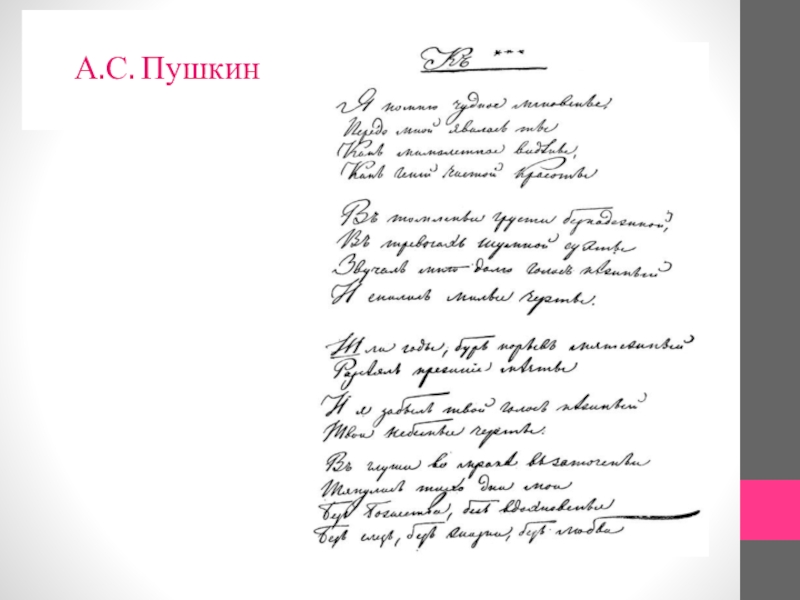 А.С. Пушкин
Къ ***
Я помню чудное мгновенье,
Передо мной явилась ты
Какъ мимолетное видѣнье,
Какъ геній чистой красоты
Въ томленьи грусти безнадежной,
Въ тревогахъ шумной суеты
Звучалъ мнѣ долго голосъ нѣжный
И снились милые черты.
Шли годы, бурь порывъ мятежный
Разсѣялъ прежніе мечты
И я забылъ твой голосъ нѣжный
Твои небесные черты.
Въ глуши во мракѣ заточенья
Тянулись тихо дни мои
Безъ Божества, безъ вдохновенья
Безъ слезъ, безъ жизни, безъ любви